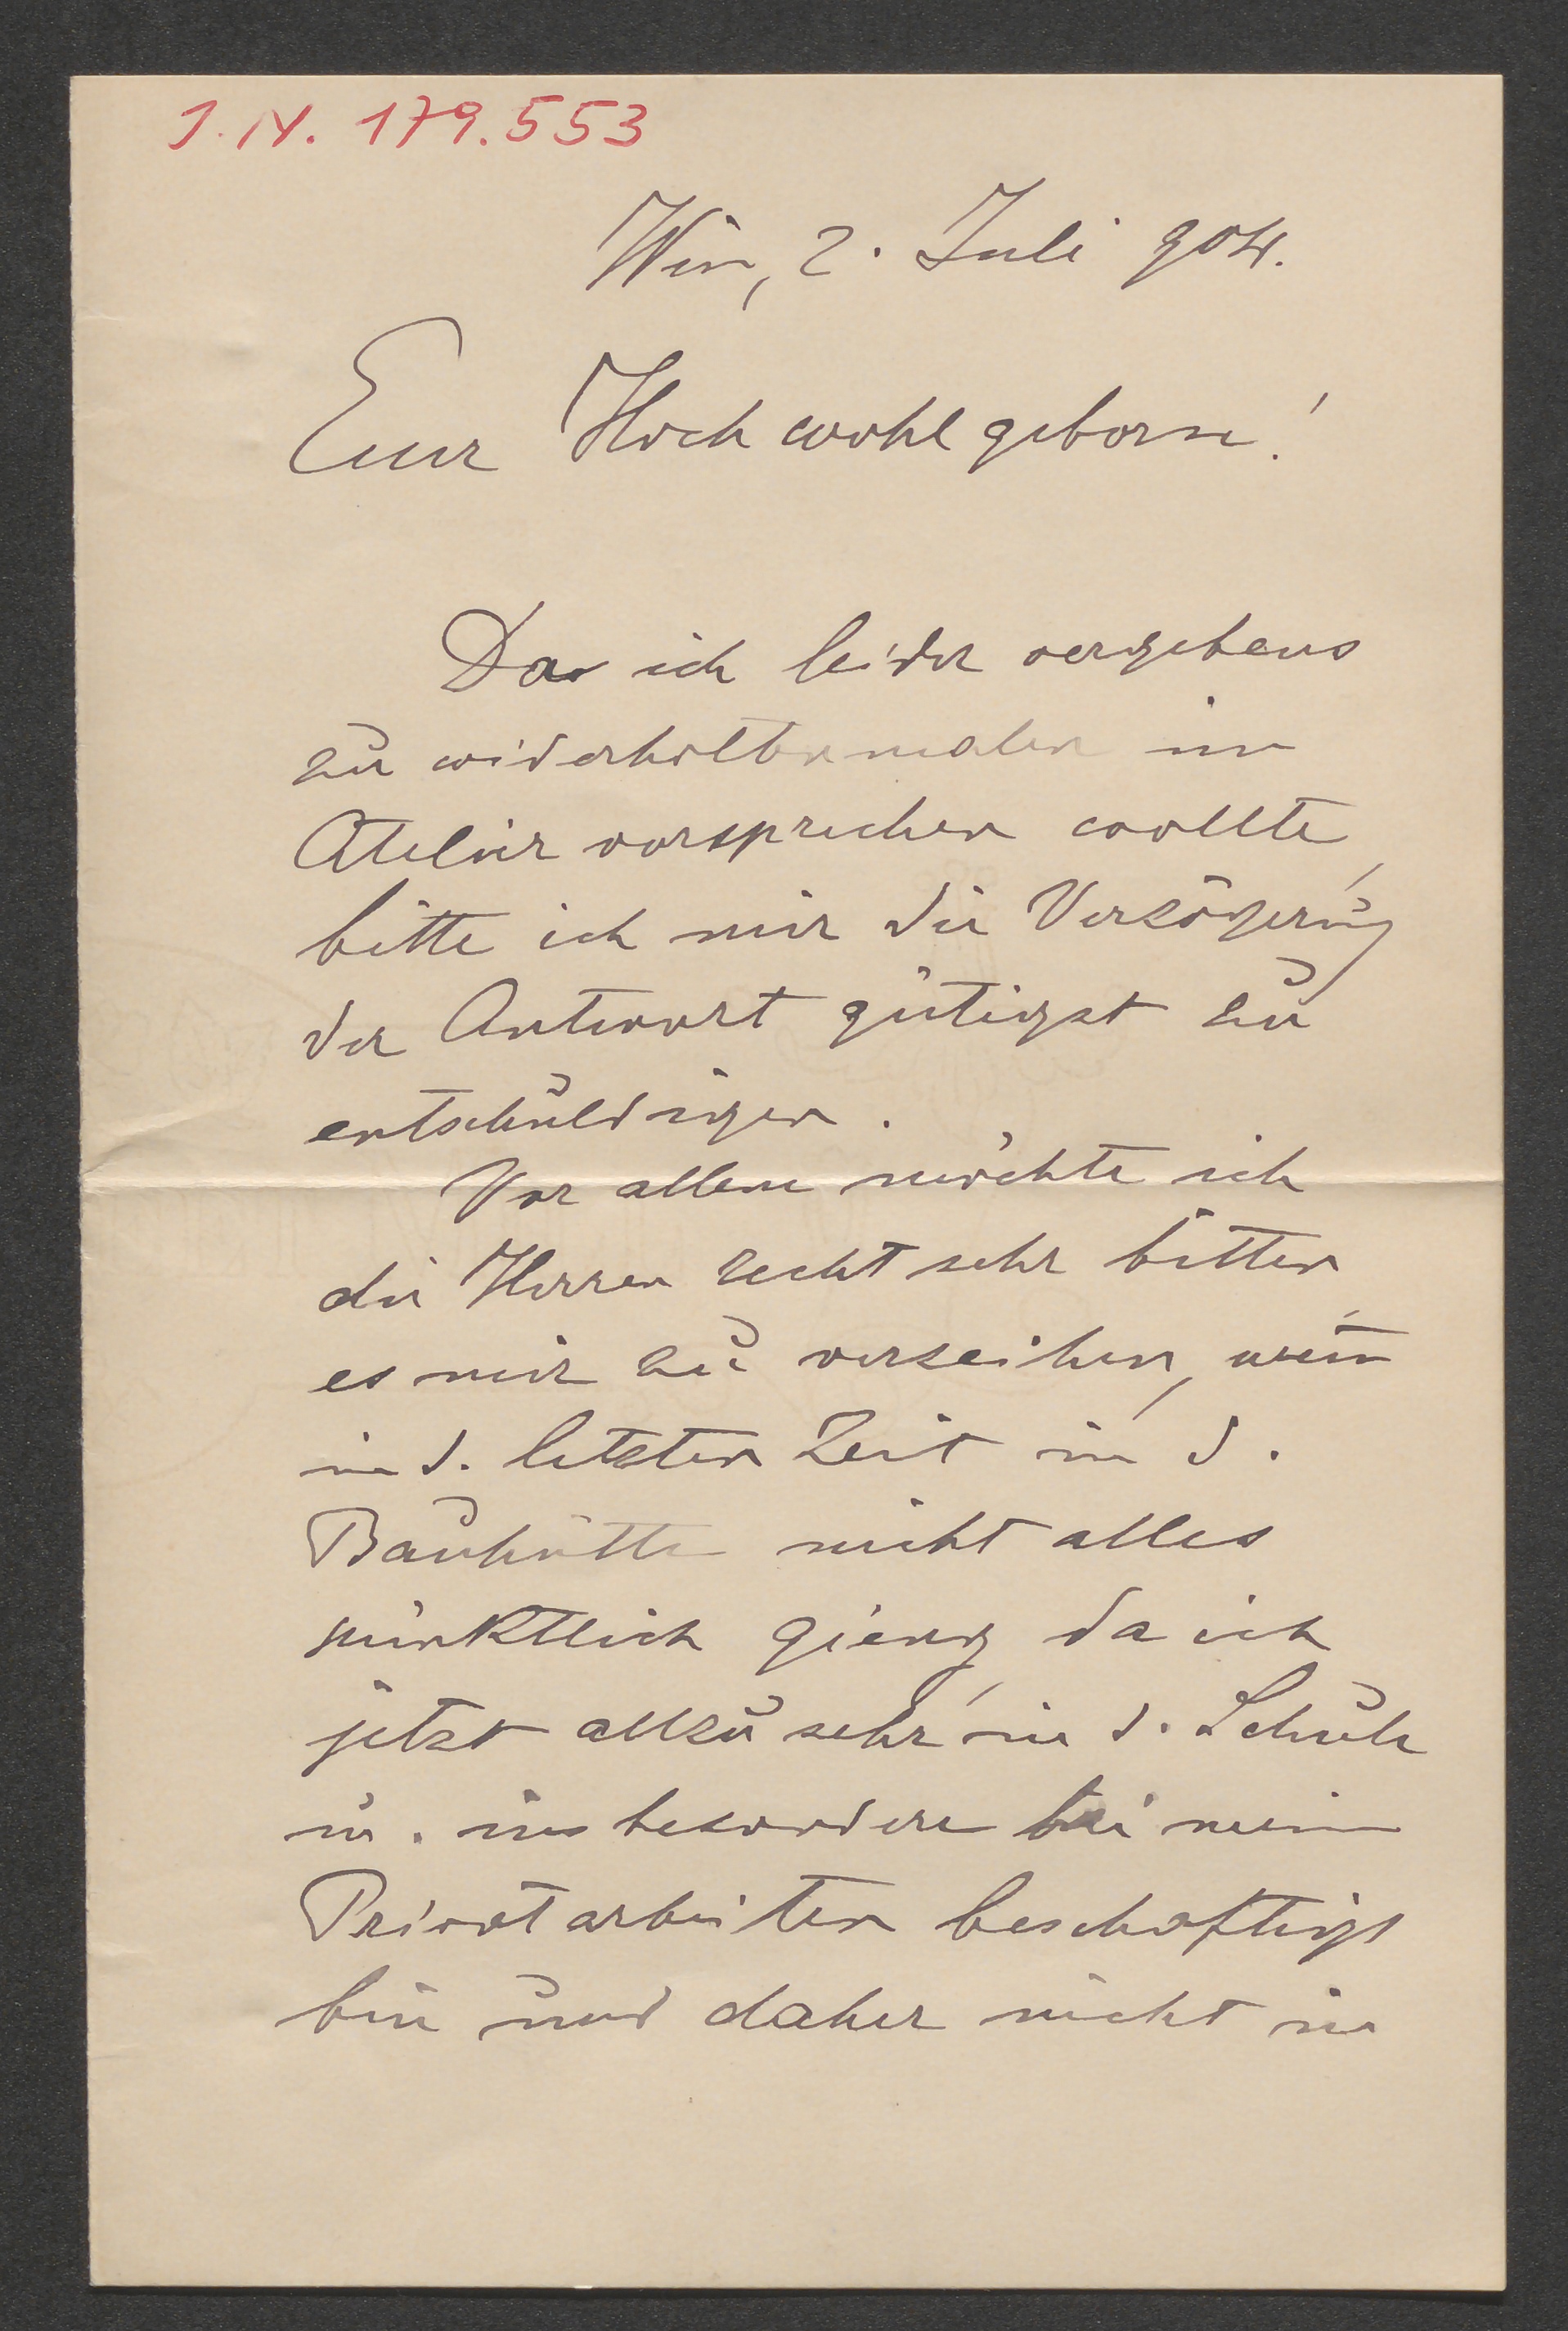 I.N. 179.553
Wien, 2. Juli 904.
Euer Hochwohlgeboren!
Da ich leider vergebens
zu wiederholtenmalen im
Atelier vorsprechen wollte,
bitte ich mir die Verzögerung
der Antwort gütigst zu
entschuldigen.
Vor allem möchte ich
die Herren recht sehr bitten
es mir zu verzeihen, wen̄
in d. letzten Zeit in d.
Bauhütte nicht alles
pünktlich gieng, da ich
jetzt allzu sehr in d. Schule
u. insbesondere bei meinen
Privatarbeiten beschäftigt
bin und daher nicht in